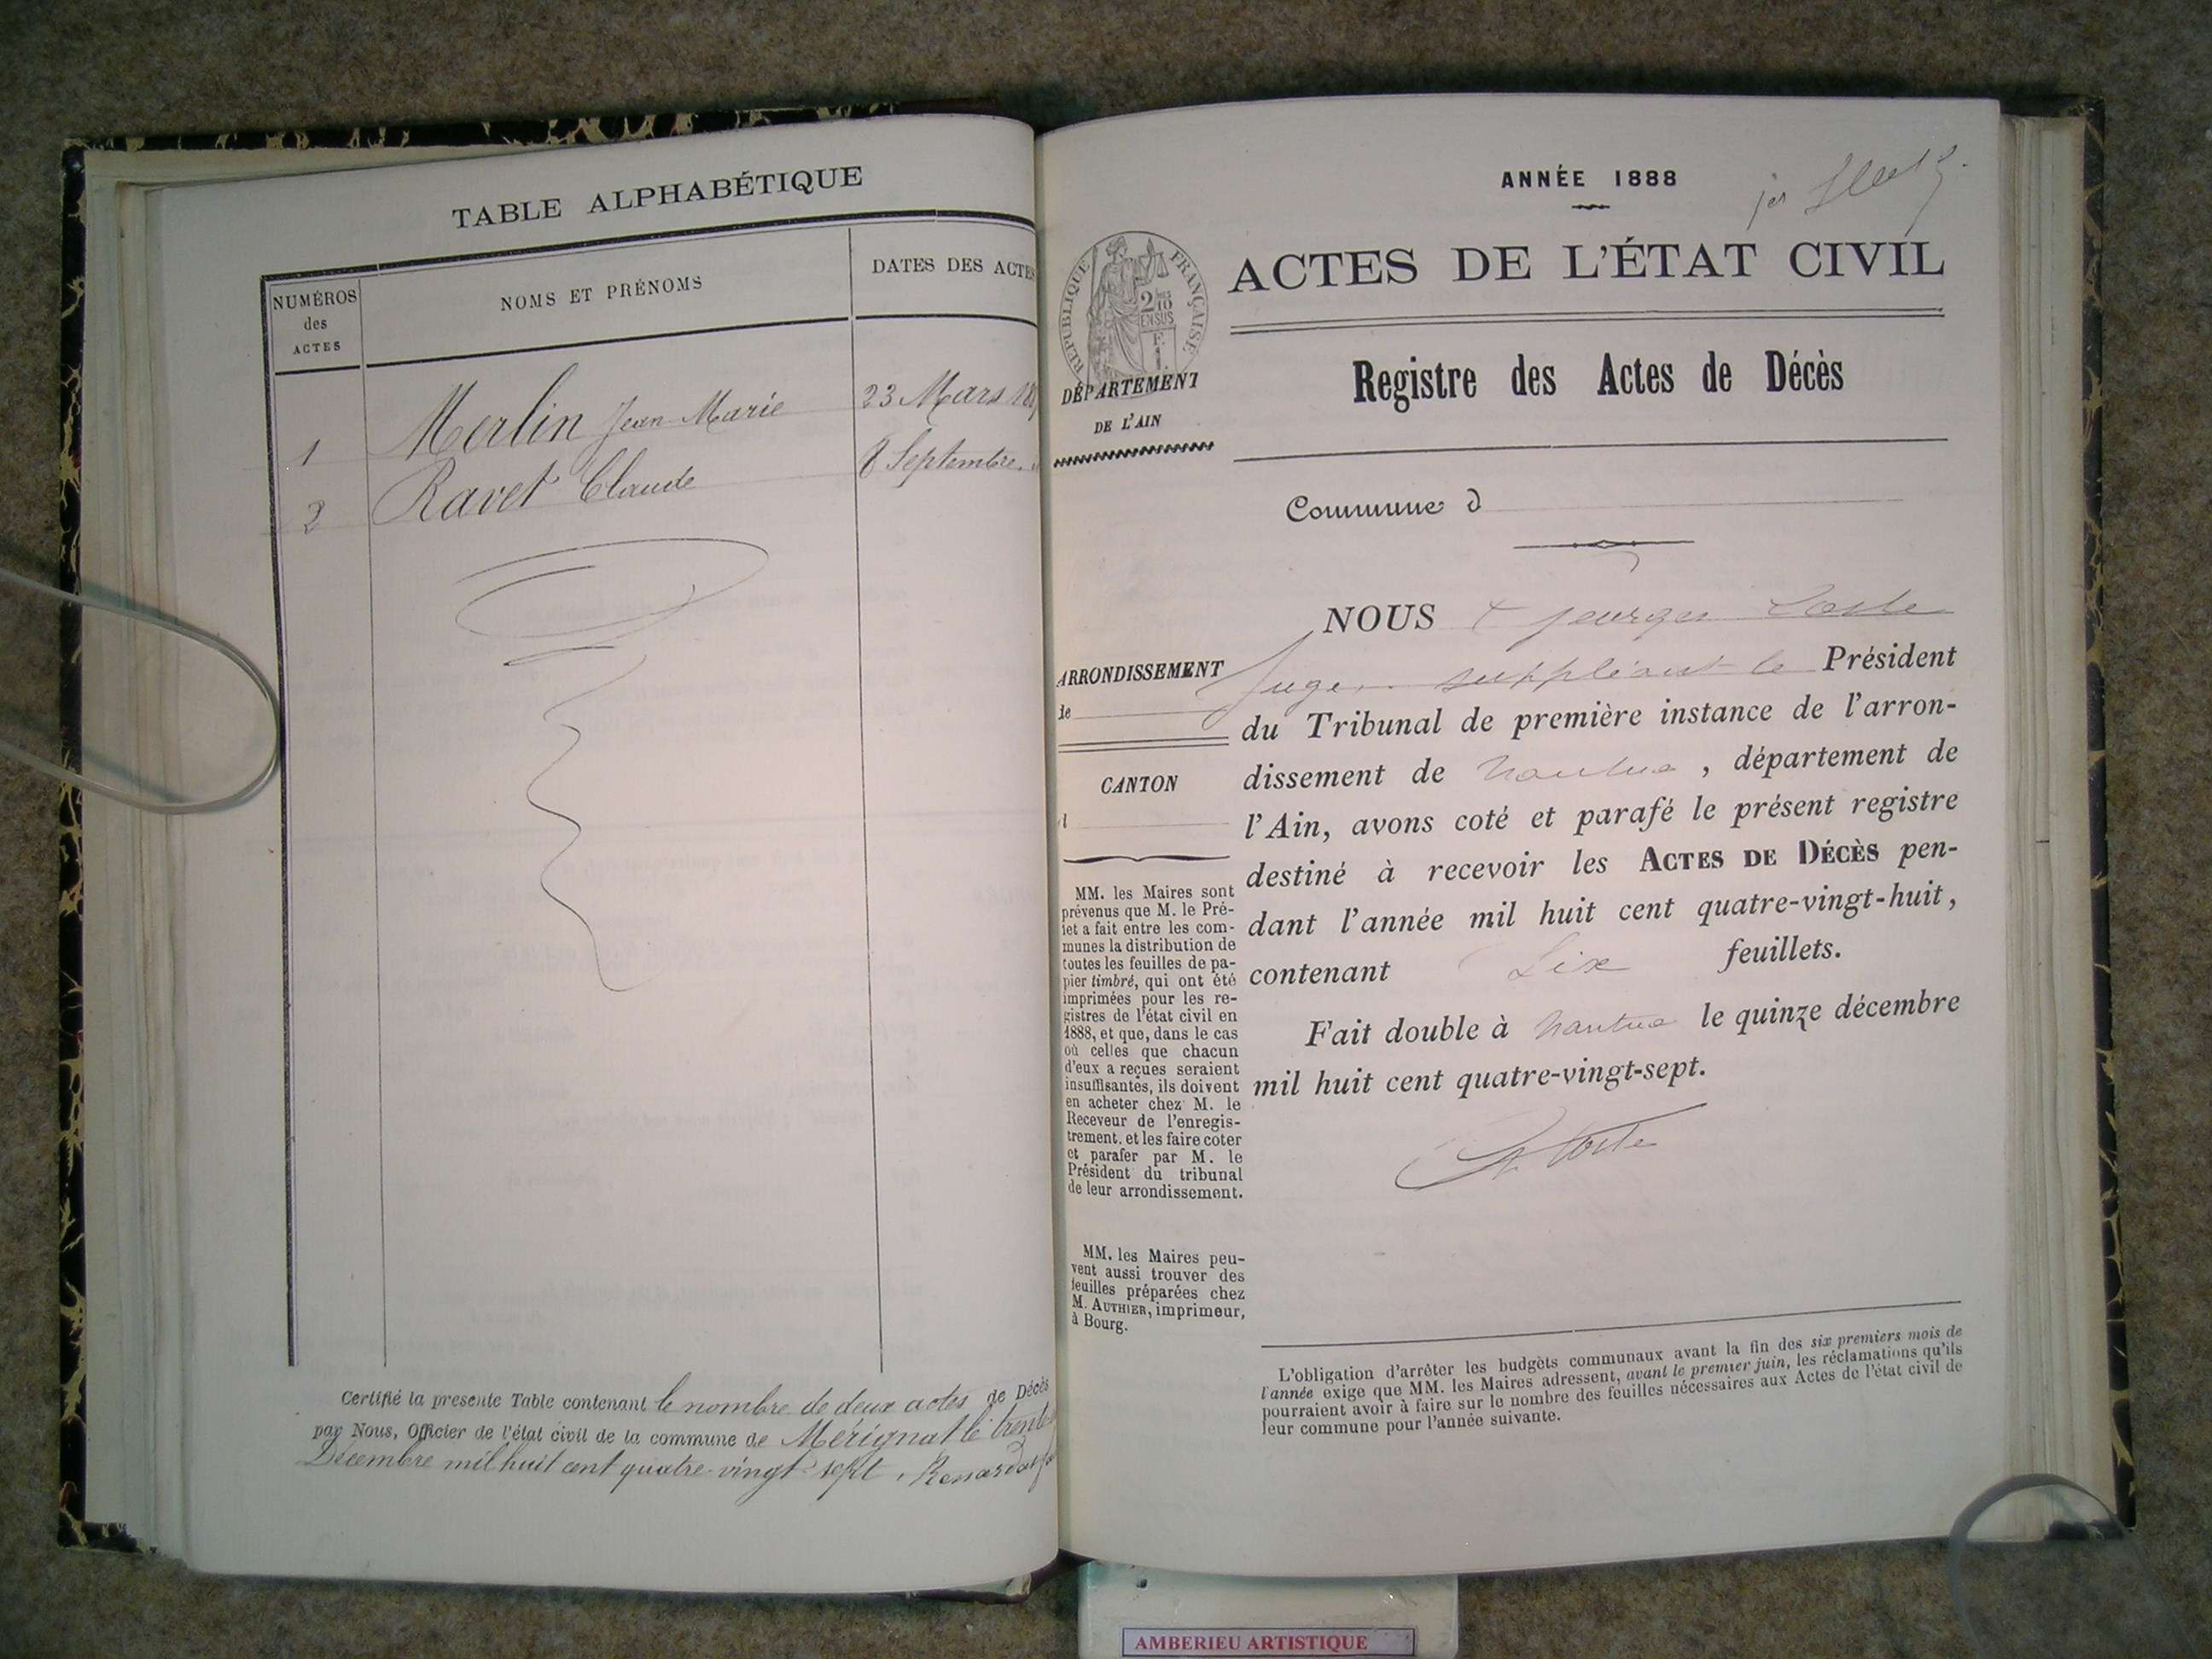 TABLE ALPHABÉTIQUE
NUMÉROS
des
ACTES
NOMS ET PRÉNOMS
DATES DES ACTES
1 Merlin Jean Marie 23 Mars
2 Ravet Claude 8 Septembre
Certifié la presente Table contenant le nombre de deux actes de Décès
par Nous, Officier de l'état civil de la commune de Mérignat le trente
Décembre mil huit cent quatre-vingt-sept.
ANNÉE 1888
1er
RÉPUBLIQUE FRANÇAISE
2/10
EN SUS
F.
1.
ACTES DE L'ÉTAT CIVIL
DÉPARTEMENT
DE L'AIN
Registre des Actes de Décès
Commune d
ARRONDISSEMENT
de
CANTON
d
MM. les Maires sont
prévenus que M. le Pré-
fet a fait entre les com-
munes la distribution de
toutes les feuilles de pa-
pier timbré, qui ont été
imprimées pour les re-
gistres de l'état civil en
1888, et que, dans le cas
où celles que chacun
d'eux a reçues seraient
insuffisantes, ils doivent
en acheter chez M. le
Receveur de l'enregis-
trement, et les faire coter
et parafer par M. le
Président du tribunal
de leur arrondissement.
MM. les Maires peu-
vent aussi trouver des
feuilles préparées chez
M. AUTHIER, imprimeur,
à Bourg.
NOUS Georges Coste
Juge, suppléant le Président
du Tribunal de première instance de l'arron-
dissement de Nantua, département de
l'Ain, avons coté et parafé le présent registre
destiné à recevoir les ACTES DE DÉCÈS pen-
dant l'année mil huit cent quatre-vingt-huit,
contenant Six feuillets.
Fait double à Nantua le quinze décembre
mil huit cent quatre-vingt-sept.
Coste
L'obligation d'arrêter les budgets communaux avant la fin des six premiers mois de
l'année exige que MM. les Maires adressent, avant le premier juin, les réclamations qu'ils
pourraient avoir à faire sur le nombre des feuilles nécessaires aux Actes de l'état civil de
leur commune pour l'année suivante.
AMBERIEU ARTISTIQUE